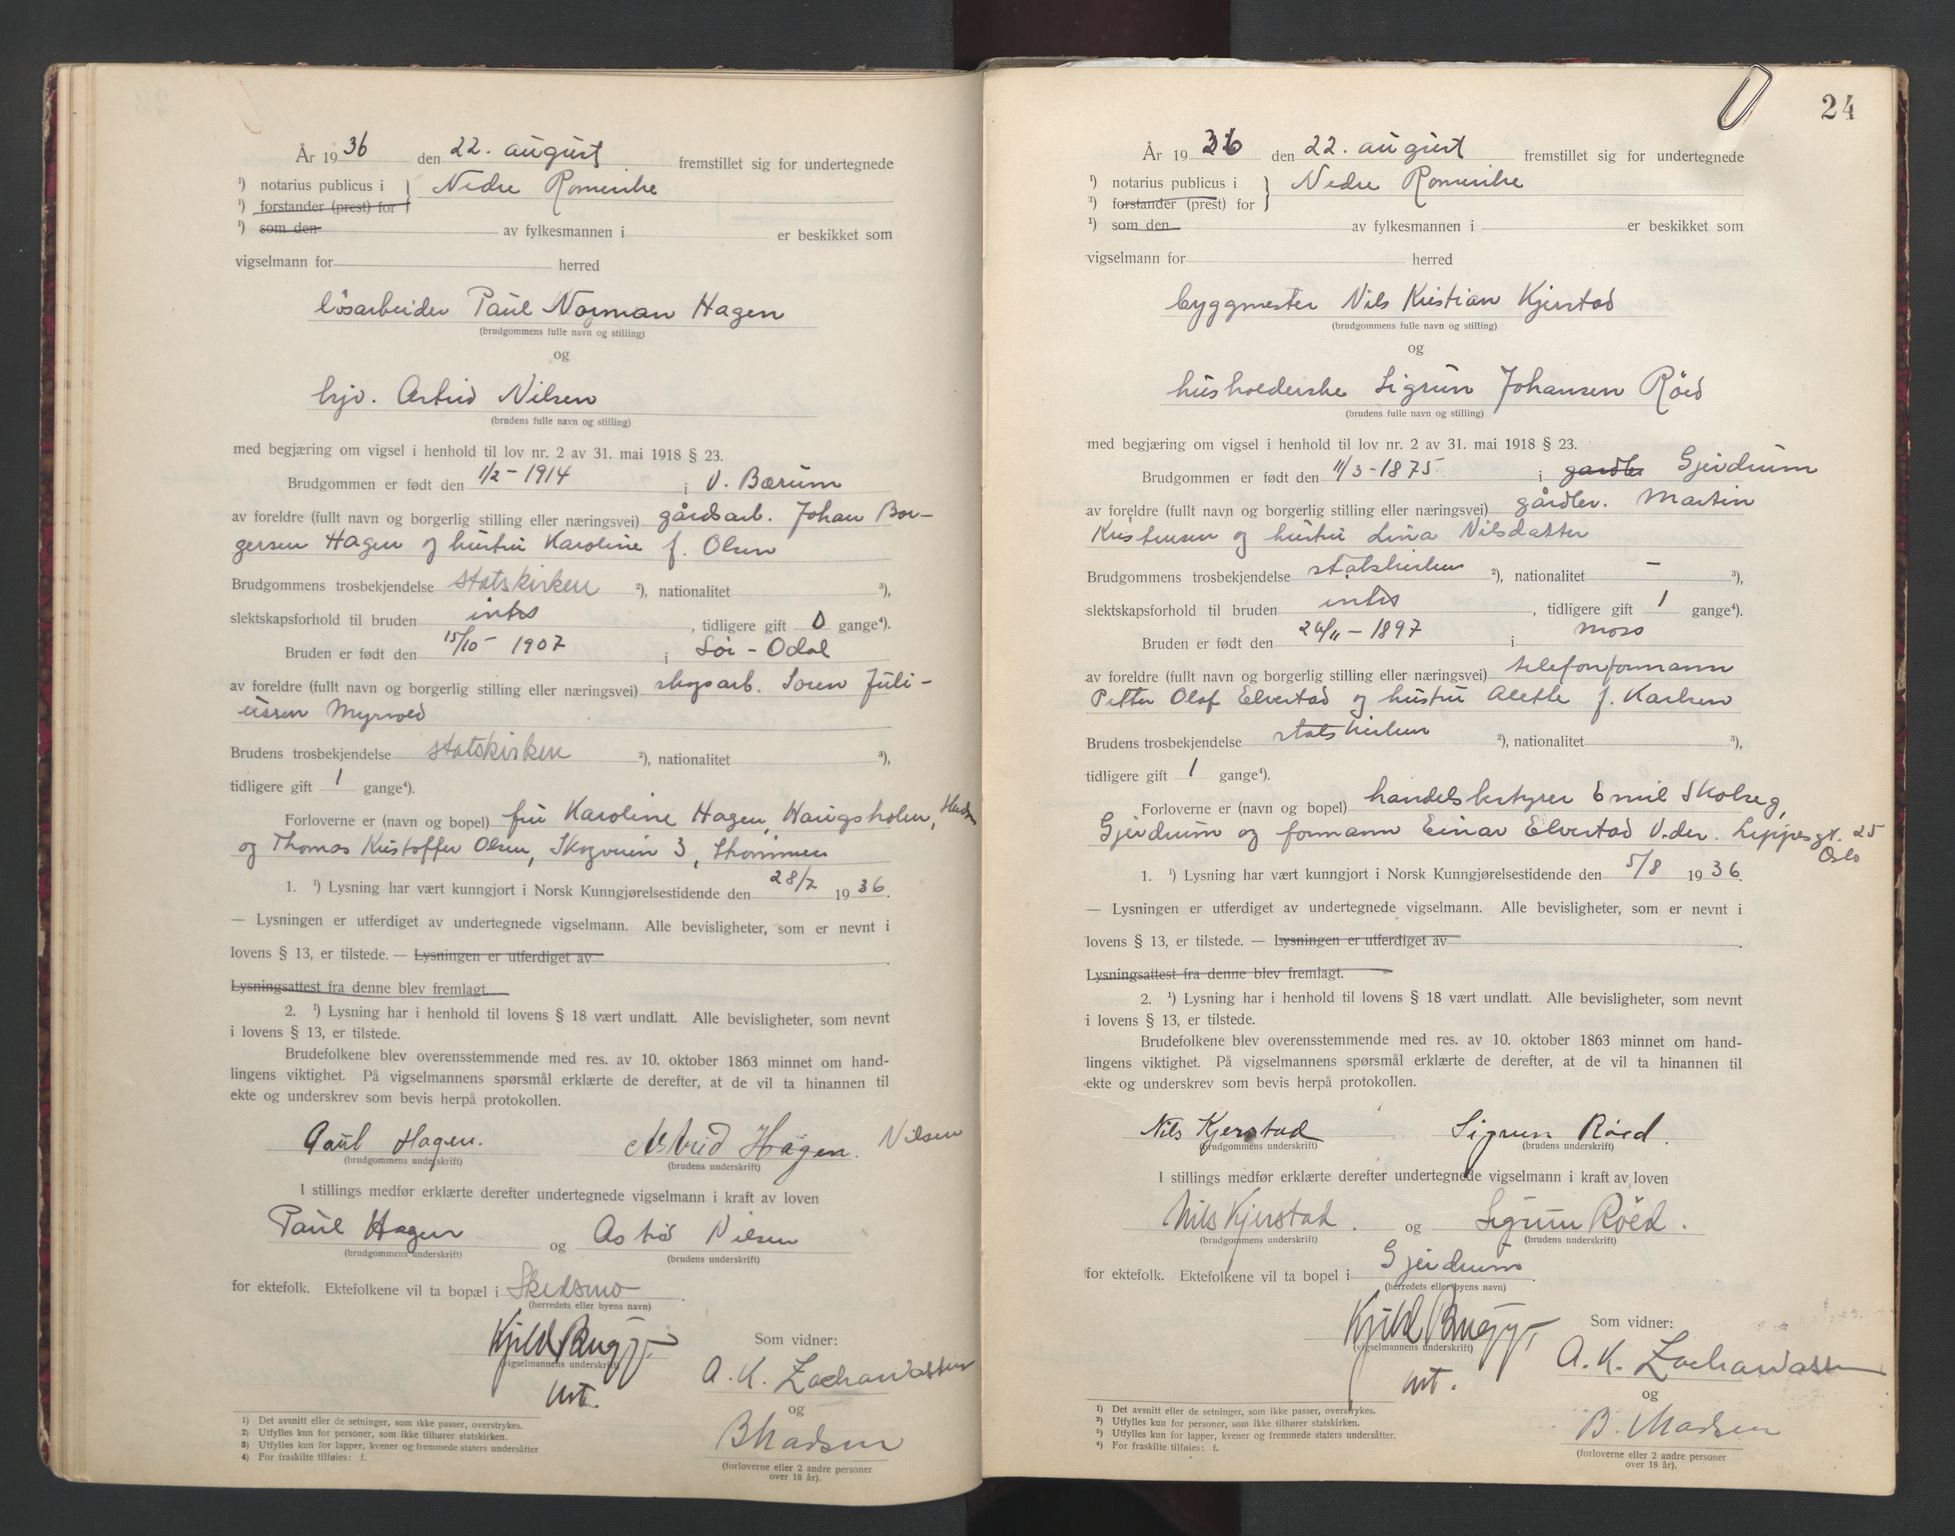 År 1936 den 22. august fremstillet sig for undertegnede
¹) notarius publicus i } Nedre Romerike
¹) forstander (prest) for
¹) som den av fylkesmannen i er beskikket som
vigselmann for herred
løsarbeider Paul Norman Hagen
(brudgommens fulle navn og stilling)
og
hjv. Astrid Nilsen
(brudens fulle navn og stilling)
med begjæring om vigsel i henhold til lov nr. 2 av 31. mai 1918 § 23.
Brudgommen er født den 1/2 - 1914 i V. Bærum
av foreldre (fullt navn og borgerlig stilling eller næringsvei) gårdsarb. Johan Bor-
gersen Hagen og hustru Karoline f. Olsen
Brudgommens trosbekjendelse statskirken ²), nationalitet ³),
slektskapsforhold til bruden intet , tidligere gift 0 gange⁴).
Bruden er født den 15/10 - 1907 i Sør-Odal
av foreldre (fullt navn og borgerlig stilling eller næringsvei) skogsarb. Soren Juli-
ussen Myrvold
Brudens trosbekjendelse statskirken ²), nationalitet ³),
tidligere gift 1 gange⁴).
Forloverne er (navn og bopel) fru Karoline Hagen, Haugsholm,
og Thomas Kristoffer Olsen, Skogveien 3, Strømmen
1. ¹) Lysning har vært kunngjort i Norsk Kunngjørelsestidende den 28/7 1936.
— Lysningen er utferdiget av undertegnede vigselmann. Alle bevisligheter, som er nevnt i
lovens § 13, er tilstede. — Lysningen er utferdiget av
Lysningsattest fra denne blev fremlagt.
2. ¹) Lysning har i henhold til lovens § 18 vært undlatt. Alle bevisligheter, som nevnt
i lovens § 13, er tilstede.
Brudefolkene blev overensstemmende med res. av 10. oktober 1863 minnet om hand-
lingens viktighet. På vigselmannens spørsmål erklærte de derefter, at de vil ta hinannen til
ekte og underskrev som bevis herpå protokollen.
Paul Hagen. Astrid Hagen. Nilsen
(brudgommens underskrift) (brudens underskrift)
I stillings medfør erklærte derefter undertegnede vigselmann i kraft av loven
Paul Hagen og Astrid Nilsen
(brudgommens underskrift) (brudens underskrift)
for ektefolk. Ektefolkene vil ta bopæl i Skedsmo.
(herredets eller byens navn)
Kjeld Bugge, Som vidner:
(vigselmannens underskrift)
A. K. Zachariassen
og
B Madsen
(forloverne eller 2 andre personer
over 18 år).
1) Det avsnitt eller de setninger, som ikke passer, overstrykes.
2) Utfylles kun for personer, som ikke tilhører statskirken.
3) Utfylles kun for lapper, kvener og fremmede staters undersåtter
4) For fraskilte tilføies: f.
24
År 1936 den 22. august fremstillet sig for undertegnede
¹) notarius publicus i } Nedre Romerike
¹) forstander (prest) for
¹) som den av fylkesmannen i er beskikket som
vigselmann for herred
byggmester Nils Kristian Kjerstad
(brudgommens fulle navn og stilling)
og
husholderske Sigrun Johansen Röed
(brudens fulle navn og stilling)
med begjæring om vigsel i henhold til lov nr. 2 av 31. mai 1918 § 23.
Brudgommen er født den 11/3 - 1875 i gardbr Gjerdrum
av foreldre (fullt navn og borgerlig stilling eller næringsvei) gårdbr. Martin
Kristensen og hustru Lina Nilsdatter
Brudgommens trosbekjendelse statskirken ²), nationalitet - ³),
slektskapsforhold til bruden intet , tidligere gift 1 gange⁴).
Bruden er født den 26/11 - 1897 i Moss
av foreldre (fullt navn og borgerlig stilling eller næringsvei) telefonformann
Petter Olaf Elvestad og hustru Alette f. Karlsen
Brudens trosbekjendelse statskirken ²), nationalitet ³),
tidligere gift 1 gange⁴).
Forloverne er (navn og bopel) handelsbestyrer Emil Skolseg,
Gjerdrum og formann Einar Elvestad V.der. Lippesgt. 25
Oslo
1. ¹) Lysning har vært kunngjort i Norsk Kunngjørelsestidende den 5/8 1936.
— Lysningen er utferdiget av undertegnede vigselmann. Alle bevisligheter, som er nevnt i
lovens § 13, er tilstede. — Lysningen er utferdiget av
Lysningsattest fra denne blev fremlagt.
2. ¹) Lysning har i henhold til lovens § 18 vært undlatt. Alle bevisligheter, som nevnt
i lovens § 13, er tilstede.
Brudefolkene blev overensstemmende med res. av 10. oktober 1863 minnet om hand-
lingens viktighet. På vigselmannens spørsmål erklærte de derefter, at de vil ta hinannen til
ekte og underskrev som bevis herpå protokollen.
Nils Kjerstad Sigrun Röed.
(brudgommens underskrift) (brudens underskrift)
I stillings medfør erklærte derefter undertegnede vigselmann i kraft av loven
Nils Kjerstad. og Sigrun Röed.
(brudgommens underskrift) (brudens underskrift)
for ektefolk. Ektefolkene vil ta bopel i Gjerdrum
(herredets eller byens navn)
Kjeld Bugge, Som vidner:
(vigselmannens underskrift)
A. K. Zachariassen
og
B. Madsen
(forloverne eller 2 andre personer
over 18 år).
1) Det avsnitt eller de setninger, som ikke passer, overstrykes.
2) Utfylles kun for personer, som ikke tilhører statskirken.
3) Utfylles kun for lapper, kvener og fremmede staters undersåtter.
4) For fraskilte tilføies: f.